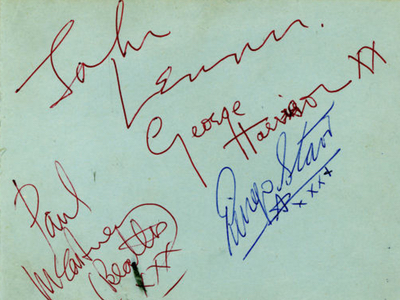 John
Lennon.
George
Harrison XX
Ringo Starr
xxxx
Paul
McCartney
(Beatles)
XXX